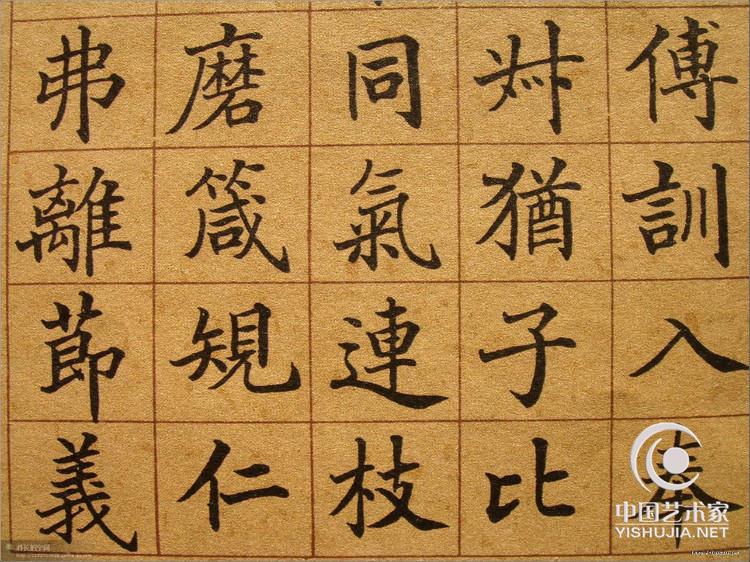 傅訓入奉
叔猶子比
同氣連枝
磨箴規仁
弗離節義
中国艺术家
YISHUJIA.NET